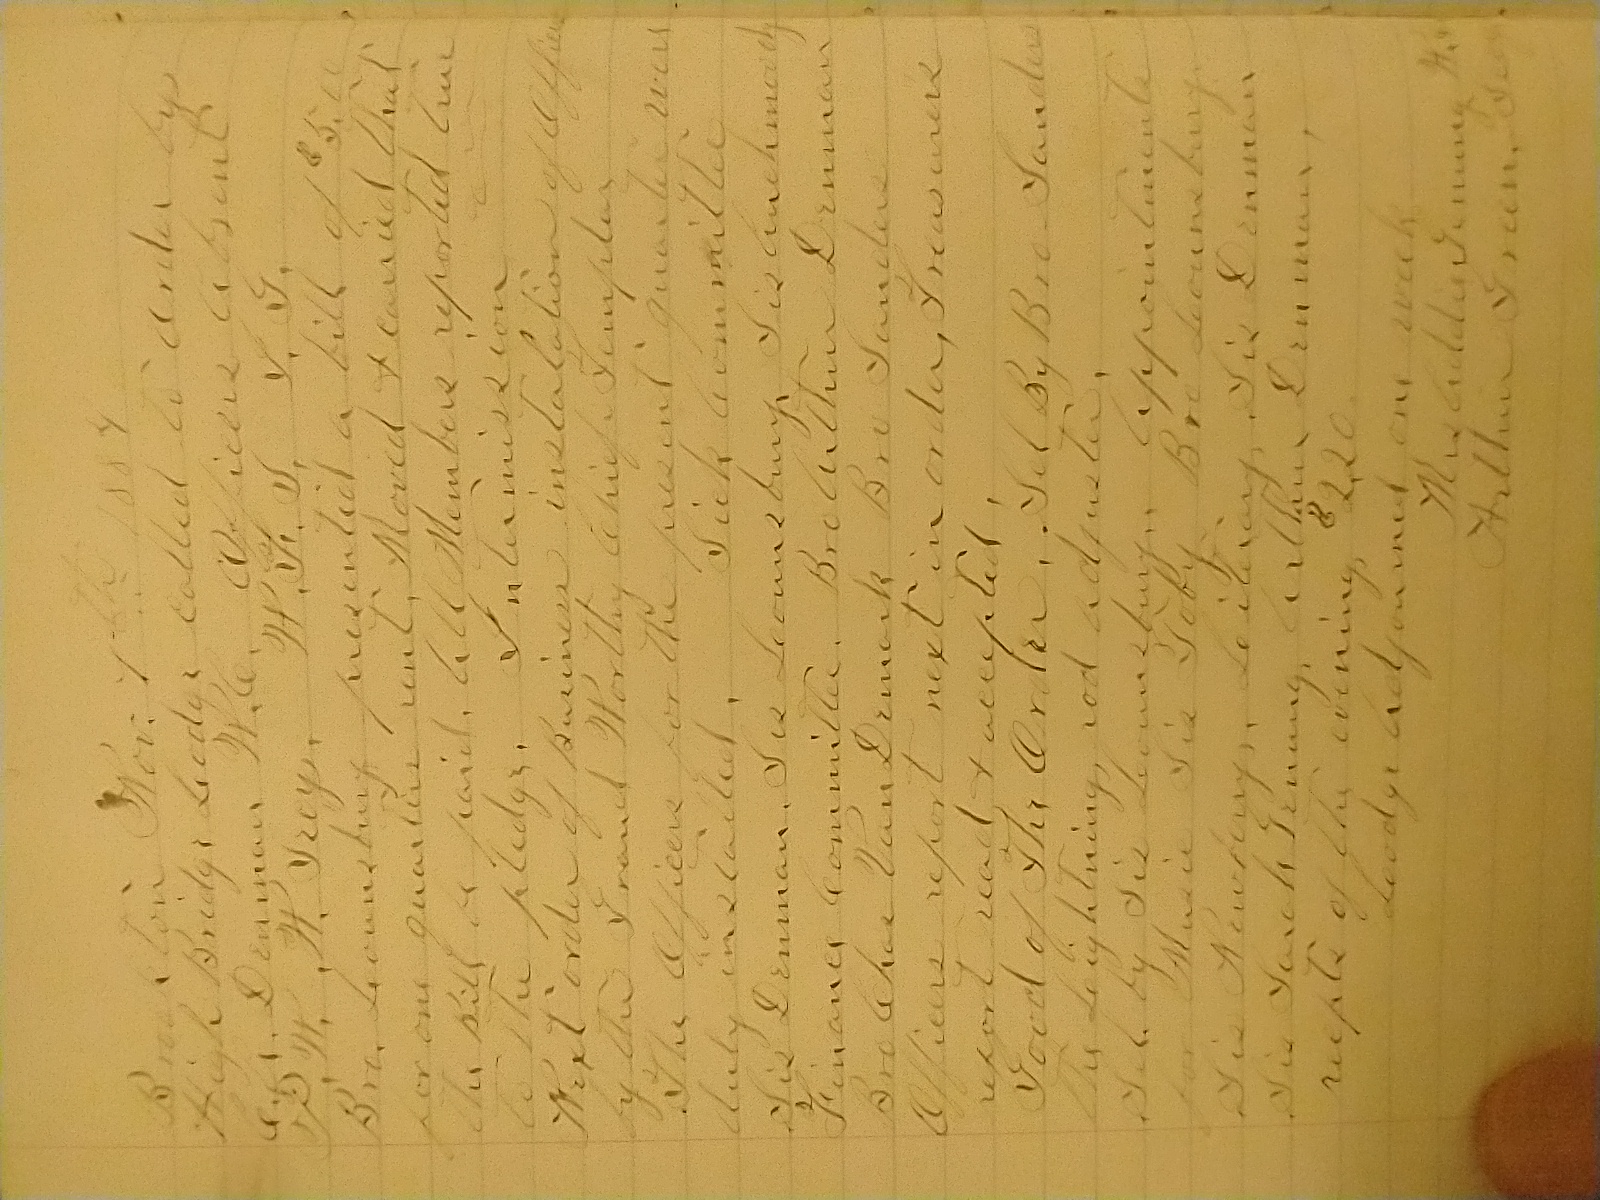 Brookton Nov. 7th 1884
High Bridge Leodge called to order by
C.A. Denman W.C. Officers Absent
P.W. H. Treys. W.F.S. I. G.
Bro. Lounsbury presented a bill of $5.00
for one quarters rent, Moved & carried that
the Bill be paid. All Members reported true
to the pledge. Intermission
Next order of Business instalation of Officers
by the Grand Worthy Chief Templar
The Officers for the present quarter were
duly installed. Sick Committee
Sis Denman. Sis Lounsbury, Sis Auchmoody
Finance Committee. Bro Arthur Denman
Bro Chas VanDemark Bro Sanders
Officers report next in order, Treasurers
report read & accepted.
Good of The Order. Sel By Bro Sanders
the Leightning rod adjuster.
Sel. by Sis Lounsbury. Appointments
for Music Sis Toby Bro Lounsbury
Sis Newberry, Leiterary, Sis Denman
Sis Sarah Genung, Arthur Denman,
recpts of the evening $2.20
Leodge Adjourned one week
Mrs Addie Genung
Arthur Green. Secy.